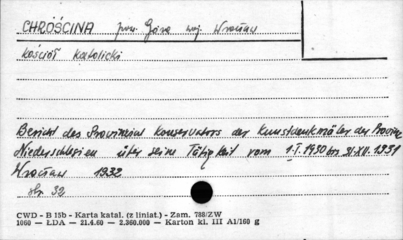 CHRÓŚCINA pow. Góra woj. Wrocław
kościół katolicki
Bericht des Provinzial Konservators der Kunstdenkmäler der Provinz
Niederschlesien über seine Tätigkeit vom 1.I.1930 bis 31.XII.1931
Wrocław 1932
str. 32
CWD - B 15b - Karta katal. (z liniat.) - Zam. 788/ZW
1060 - LDA - 21.4.60 - 2.360.000 - Karton kl. III A1/160 g